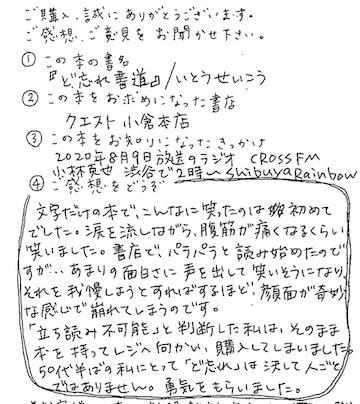 ご購入、誠にありがとうございます。
ご感想、ご意見をお聞かせ下さい。
① この本の書名
『ど忘れ書道』/いとうせいこう
② この本をお求めになった書店
クエスト小倉本店
③ この本をお知りになったきっかけ
2020年8月9日放送のラジオ CROSS FM
小林克也 渋谷で2時〜shibuya Rainbow
④ ご感想をどうぞ
文字だけの本で、こんなに笑ったのは初めて
でした。涙を流しながら、腹筋が痛くなるくらい
笑いました。書店で、パラパラと読み始めたので
すが‥あまりの面白さに声を出して笑いそうになり、
それを我慢しようとすればするほど、顔面が奇妙
な感じで崩れてしまうのです。
「立ち読み不可能」と判断した私は、そのまま
本を持ってレジへ向かい、購入してしまいました。
50代半ばの私にとって「ど忘れ」は決して人ごと
ではありません。勇気をもらいました。